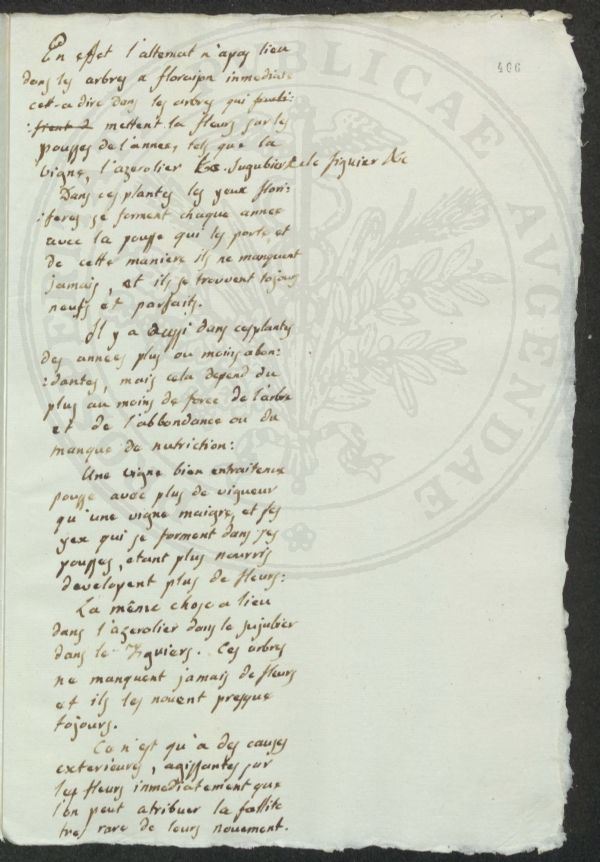 466
En effet l'alternat n'a pas lieu
dans les arbres a floraison inmediate
cet-a dire dans les arbres qui fructi:
:fient d mettent la fleurs sur les
pousses de l'année, tels que la
vigne, l'azerolier le Jujubier et le figuier &c
Dans ces plantes les yeux flori:
:feres se forment chaque annee
avec la pousse qui les porte, et
de cette maniere ils ne manquent
jamais, et ils se trouvent tojours
neufs et parfaits.
Il y a aussi dans ces plantes
des annees plus ou moins abon:
:dantes, mais cela depend du
plus au moins de force de l'arbre
et de l'abbondance ou du
manque de nutrition:
Une vigne bien entraitenue
pousse avec plus de vigueur
qu'une vigne maigre, et ses
yex qui se forment dans ses
pousses, etant plus nourris
developent plus de fleurs:
La même chose a lieu
dans l'azerolier dans le jujubier
dans le figuiers. Ces arbres
ne manquent jamais de fleurs
et ils les nouent presque
tojours.
Ce n'est qu'a des causes
exterieures, agissantes sur
les fleurs inmediatement que
l'on peut atribuer la fallite
tres rare de leurs nouement.
PUBLICAE
AUGENDAE